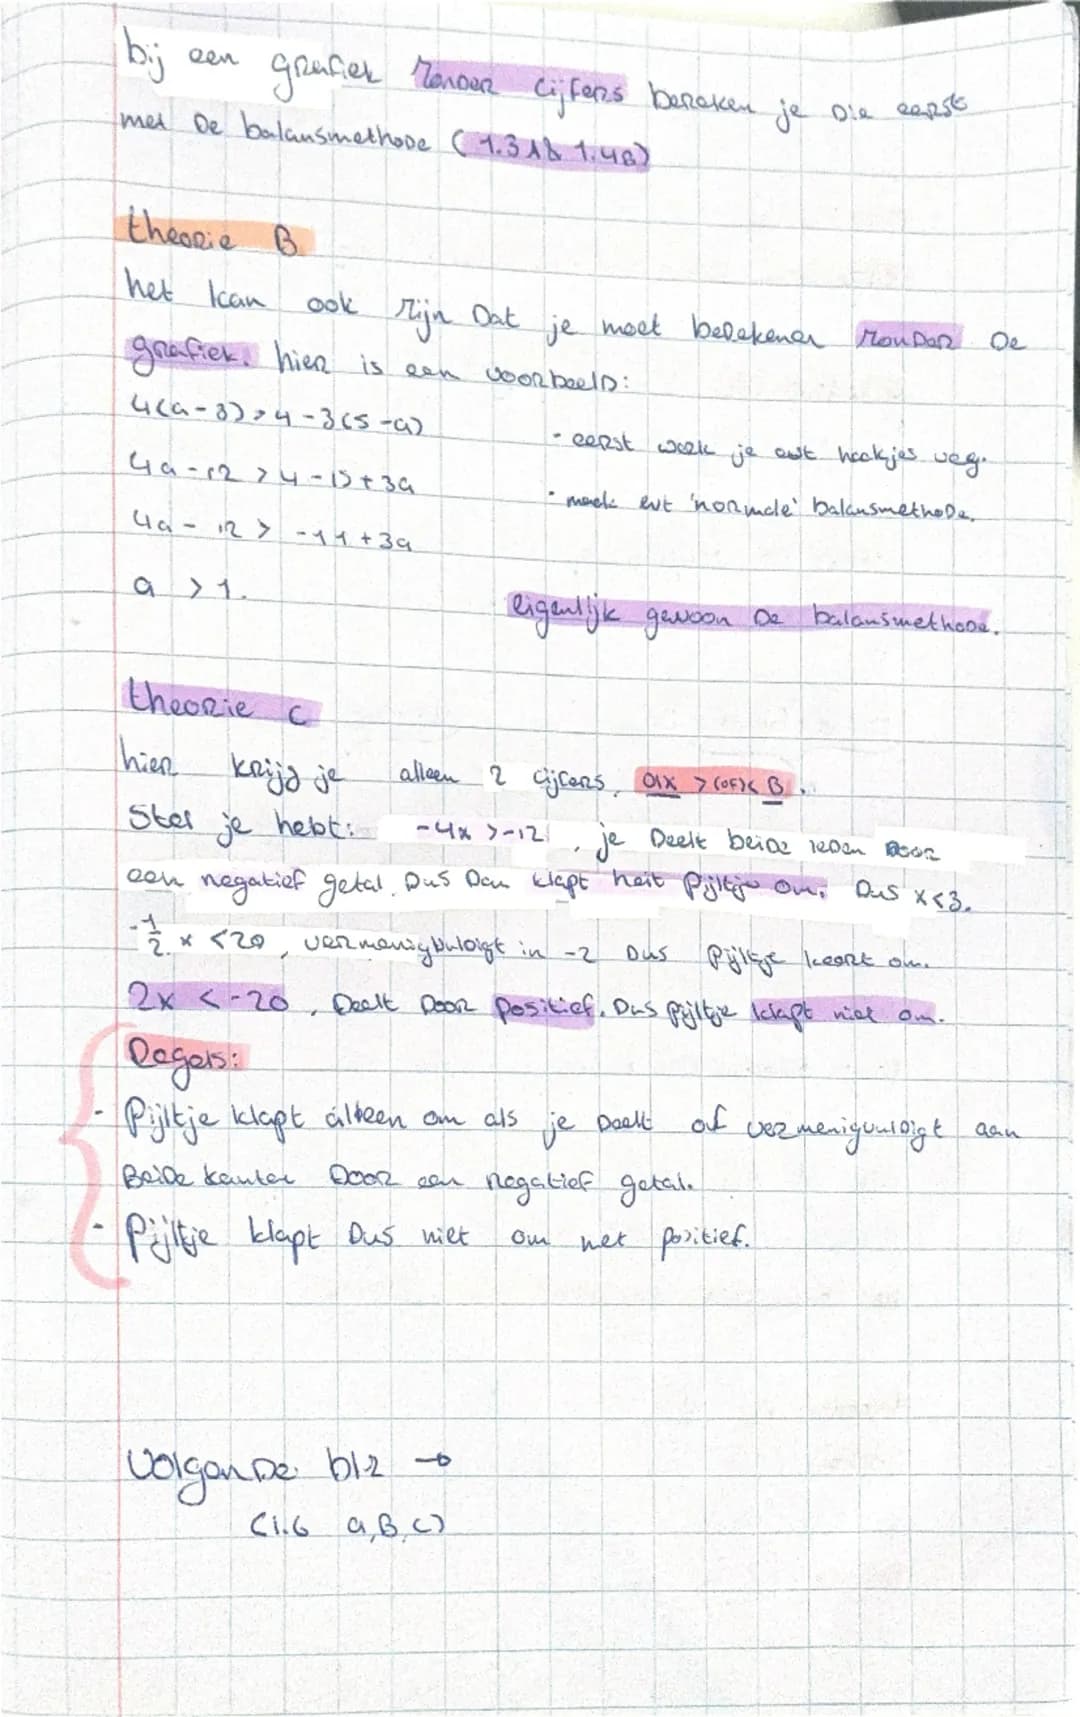 bij een grafiek zonder cijfers bereken je die eerst
met De balansmethode (1.3A& 1.4B)
theorie B
het kan ook zijn Dat je moet berekenen zonder De
grafiek. hier is een voorbeeld:
4(a-3)>4-3(5-a)
- eerst werk je evt haakjes weg.
4a-12>4-15+3a
- maak evt 'normale' balansmethode.
4a-12> -11+3a
a >1.
eigenlijk gewoon De balansmethode.
theorie C
hier krijg je alleen 2 cijfers, ax >(of)< B.
Stel je hebt: -4x >-12, je Deelt beide leden Door
een negatief getal. Dus Dan klapt heit pijltje om. Dus x<3.
-1/2 x <20, vermenigvuldigt in -2 Dus pijltje keert om.
2x <-20, Deelt Door positief. Dus pijltje klapt niet om.
Regels:
- Pijltje klapt alleen om als je Deelt of vermenigvuldigt aan
Beide kanten Door een negatief getal.
- Pijltje klapt Dus niet om met positief.
volgende blz →
(1.6 a,B,C)